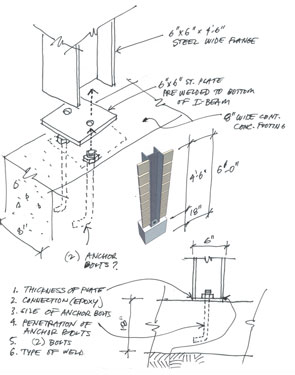 6"x6" x 4'-6"
STEEL WIDE FLANGE
6"x6" ST. PLATE
ARE WELDED TO BOTTOM
OF I-BEAM
8" WIDE CONT.
CONC. FOOTING
4'-6"
6'-0"
18"
6'
8"
(2) ANCHOR
BOLTS?
6"
1. THICKNESS OF PLATE
2. CONNECTION (EPOXY)
3. SIZE OF ANCHOR BOLTS
4. PENETRATION OF
ANCHOR BOLTS
5. (2) BOLTS
6. TYPE OF WELD
18"